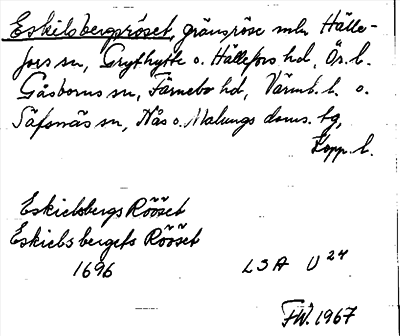 Eskilsbergsröset, gränsröse mln Hälle-
fors sn, Grythytte o. Hällefors hd, Ör. l.
Gåsborns sn, Färnebo hd, Värml. l. o.
Säfsnäs sn, Nås o. Malungs doms. tg,
Kopp. l.
Eskielsbergs Rööset
Eskiels bergets Rööset
1696 LSA U 24
FW. 1967